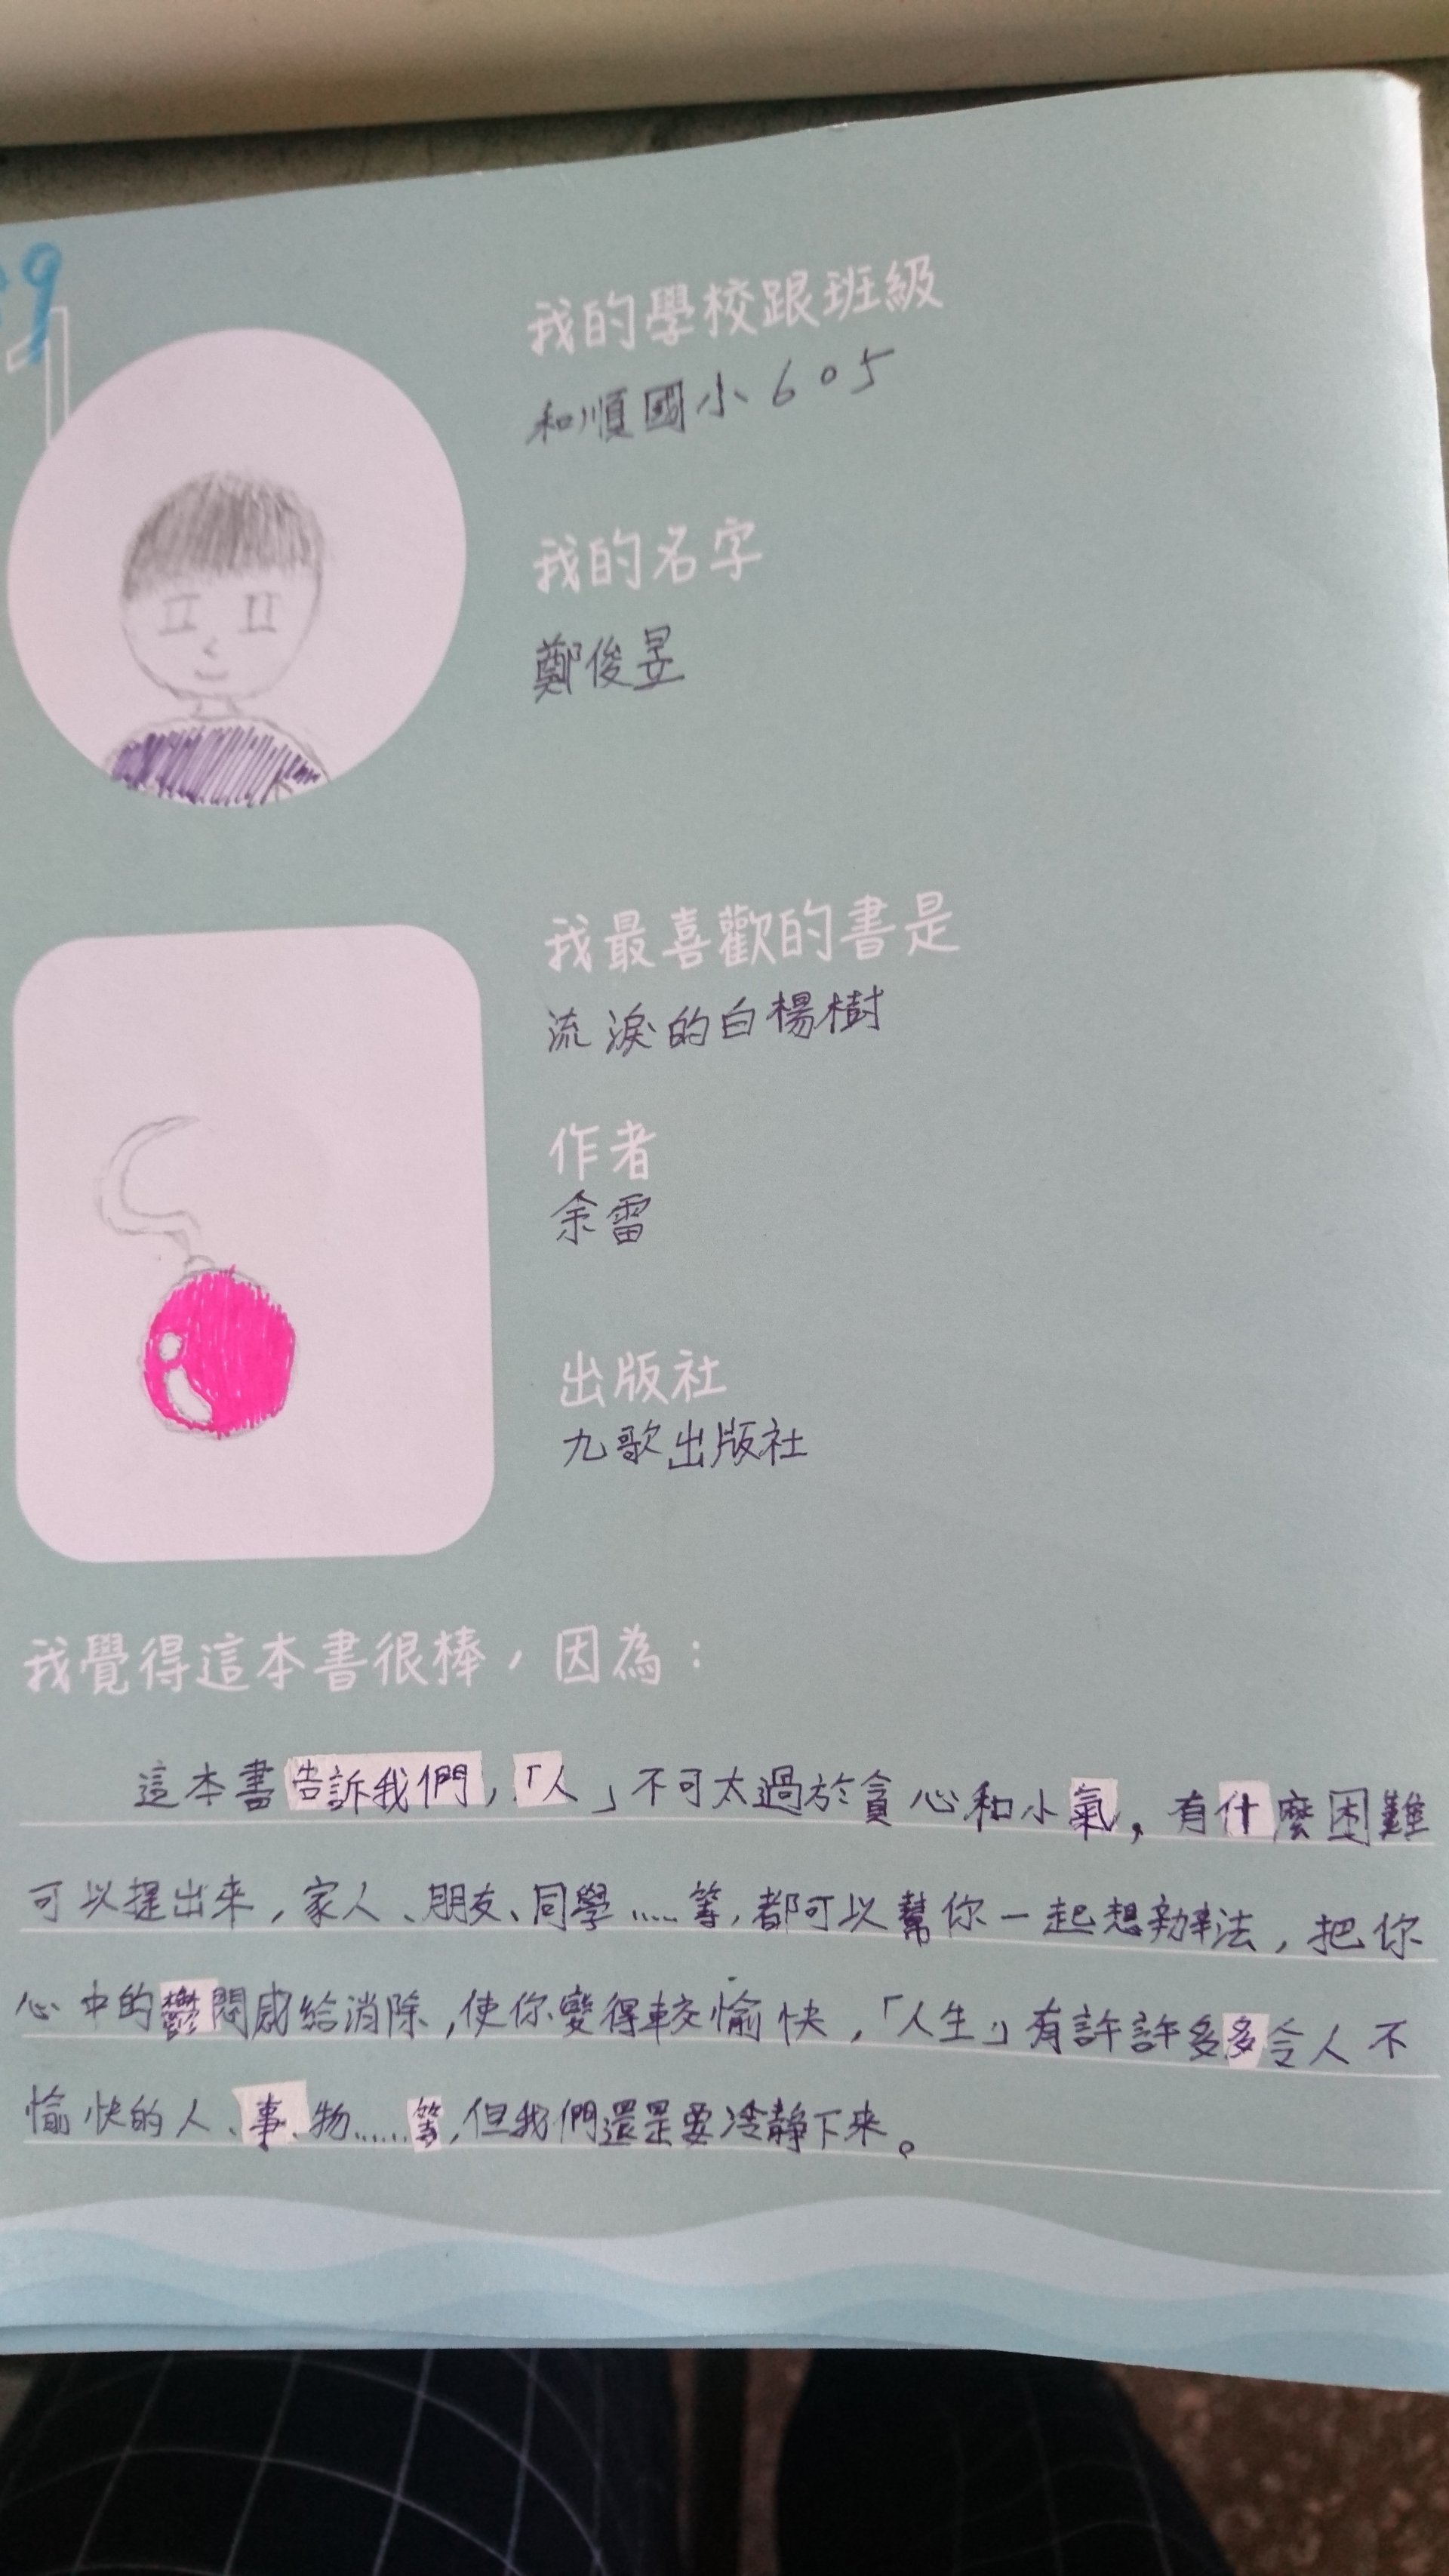 9
我的學校跟班級
和順國小605
我的名字
鄭俊昱
我最喜歡的書是
流淚的白楊樹
作者
余雷
出版社
九歌出版社
我覺得這本書很棒，因為：
這本書告訴我們，「人」不可太過於貪心和小氣，有什麼困難
可以提出來，家人、朋友、同學……等，都可以幫你一起想辦法，把你
心中的鬱悶感給消除，使你變得較愉快，「人生」有許許多多令人不
愉快的人、事、物……等，但我們還是要冷靜下來。